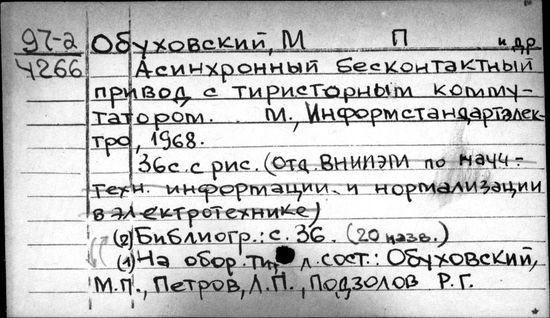 97-2 Обуховский, М П и др
4266 Асинхронный бесконтактный
привод с тиристорным комму-
татором. М., Информстандартэлек-
тро, 1968.
36с. с рис. (Отд. ВНИИЭМ по науч-
техн. информации и нормализации
в электротехнике)
(2) Библиогр.: с. 36. (20 назв.)
(1) На обор. тит. л. сост.: Обуховский,
М.П., Петров, Л.П., Подзолов Р.Г.